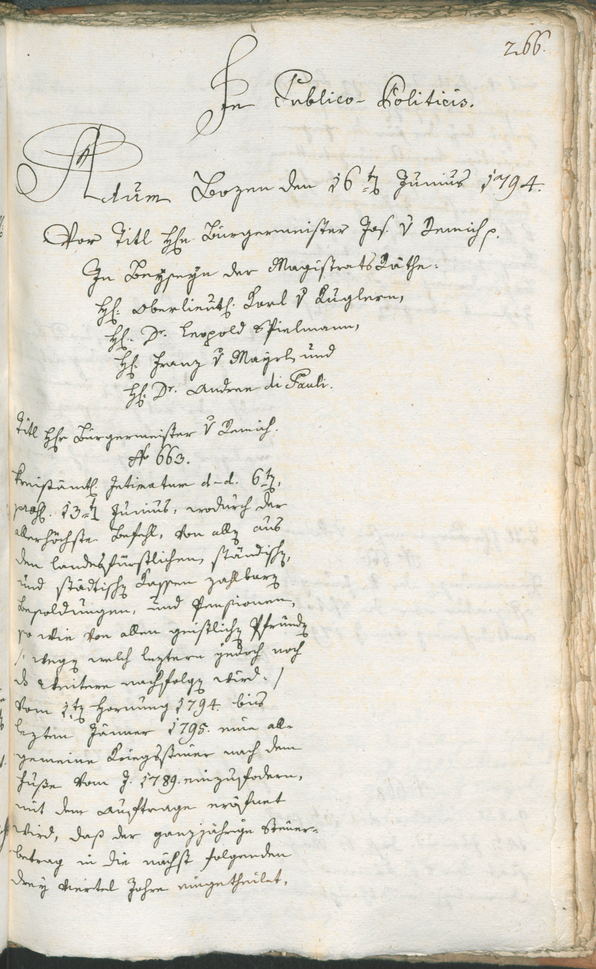 266.
In Publico-Politicis.
Actum Bozen den 16ten Junius 1794.
Vor Titl Hhr. Bürgermeister Jos. v Remich p.
In Beyseyn der Magistrats Räthe.
Hh. Oberlieuth. Karl v Kuglern,
Hh. Dr. Leopold Spielmann,
Hh. Franz v Mayrl, und
Hh. Dr. Andree di Pauli.
Titl Hhr Bürgermeister v Remich.
N 663.
Kreisämtl. Intimatum d-d. 6ten,
praes. 13ten Junius, wodurch der
allerhöchste Befehl, von allen aus
den landesfürstlichen, ständischen,
und städtischen Kassen zahlbaren
Besoldungen, und Pensionen,
so wie von allen geistlichen Pfründen
/: wegen welch leztern jedoch noch
das Weitere nachfolgen wird :/
vom 1ten Hornung 1794 bis
lezten Jänner 1795. eine all-
gemeine Kriegssteuer nach dem
Fuße vom J. 1789. einzufodern,
mit dem Auftrage eröfnet
wird, daß der ganzjährige Steuer-
betrag in die nächst folgenden
drey viertel Jahre eingetheilet,